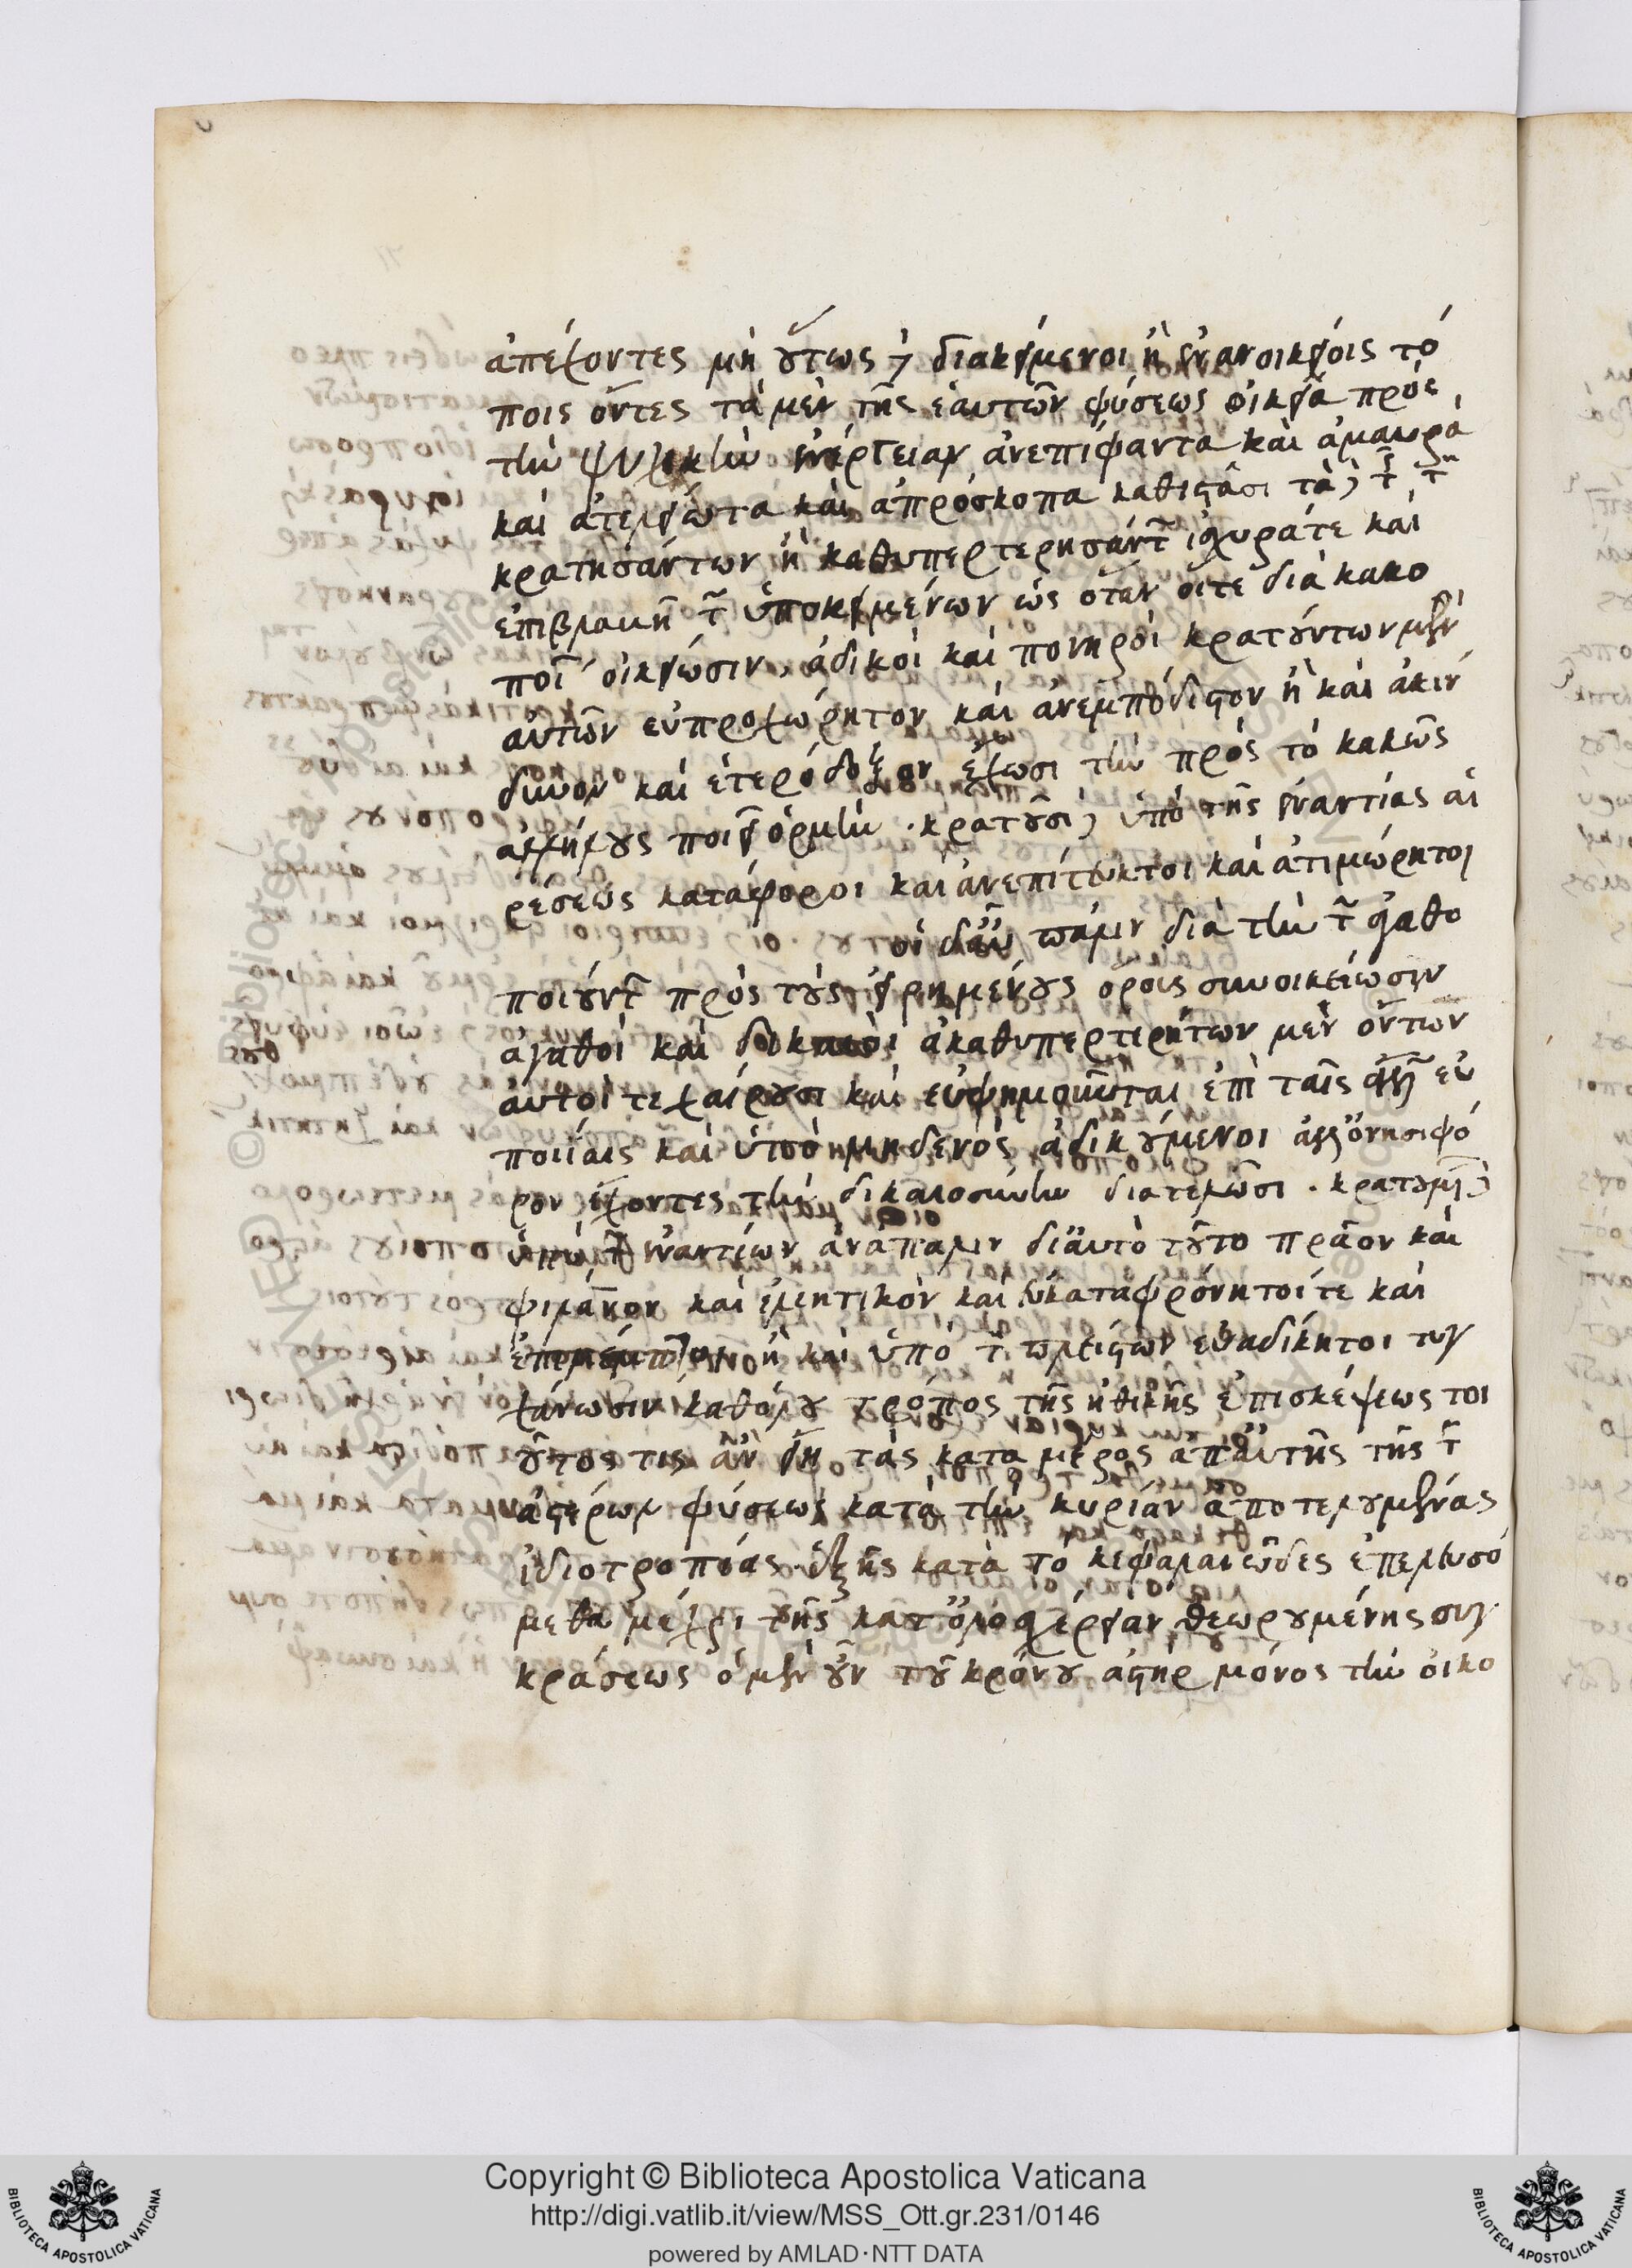 ἀπέχοντες μὴ οὕτως δὲ διακείμενοι ἢ ἐν ἀνοικείοις τό
ποις ὄντες τὰ μὲν τῆς ἑαυτῶν φύσεως οἰκεῖα πρὸς
τὴν ψυχικὴν ἐνέργειαν ἀνεπίφαντα καὶ ἀμαυρὰ
καὶ ἀτελείωτα καὶ ἀπρόσκοπα καθιστᾶσι τὰ δὲ τῆς τῶν
κρατησάντων ἢ καθυπερτερησάντων ἰσχυρά τε καὶ
ἐπιβλαβῆ τῶν ὑποκειμένων ὡς ὅταν οἵτε διὰ κακο
ποιῶν οἰκείωσιν, ἄδικοι καὶ πονηροὶ κρατούντων μὲν
αὐτῶν εὐπροχώρητον καὶ ἀνεμπόδιστον ἢ καὶ ἀκίν
δυνον καὶ ἑτερόδοξον ἔχωσι τὴν πρὸς τὸ κακῶς
ἀλλήλους ποιεῖν ὁρμὴν . κρατοῦσι δὲ ὑπὸ τῆς ἐναντίας αἱ
ρέσεως κατάφοροι καὶ ἀνεπίτευκτοι καὶ ἀτιμώρητοι
οἱ δ' αὖ πάλιν διὰ τὴν τῶν ἀγαθο
ποιούντων πρὸς τοὺς εἰρημένους ὅρους συνοικείωσιν
ἀγαθοὶ καὶ ἀκαθυπερτερήτων μὲν ὄντων
αὐτοί τε χαίρουσι καὶ ἐπὶ ταῖς εὐ
ποιίαις καὶ ὑπὸ μηδενὸς ἀδικούμενοι ἀλλ' ὀνησιφό
ρον ἔχοντες τὴν δικαιοσύνην διατελῶσι . κρατουμένων δὲ
ὑπὸ τῶν ἐναντίων ἀναπαλιν δι' αὐτὸ τοῦτο πρᾶον καὶ
φιλάνον καὶ ἐλεητικὸν καὶ εὐκαταφρόνητοί τε καὶ
ἢ καὶ ὑπὸ τῶν πλείστων εὐαδίκητοι τυγ
χάνωσιν καθόλου τρόπος τῆς ἠθικῆς ἐπισκέψεως τοι
οῦτος τις ἂν εἴη τὰς κατα μέρος ἀπ' αὐτῆς τῆς τῶν
ἀστέρων φύσεως κατὰ τὴν κυρίαν ἀποτελουμένας
ἰδιοτροπίας ἑξῆς κατὰ τὸ κεφαλαιῶδες ἐπελευσό
μεθα μέχρι τῆς κατ' ὁλοσχέρειαν θεωρουμένης συγ
κράσεως ὁ μὲν οὖν τοῦ κρόνου ἀστὴρ μόνος τὴν οἰκο
Copyright © Biblioteca Apostolica Vaticana
http://digi.vatlib.it/view/MSS_Ott.gr.231/0146
powered by AMLAD·NTT DATA
BIBLIOTECA APOSTOLICA VATICANA
BIBLIOTECA APOSTOLICA VATICANA